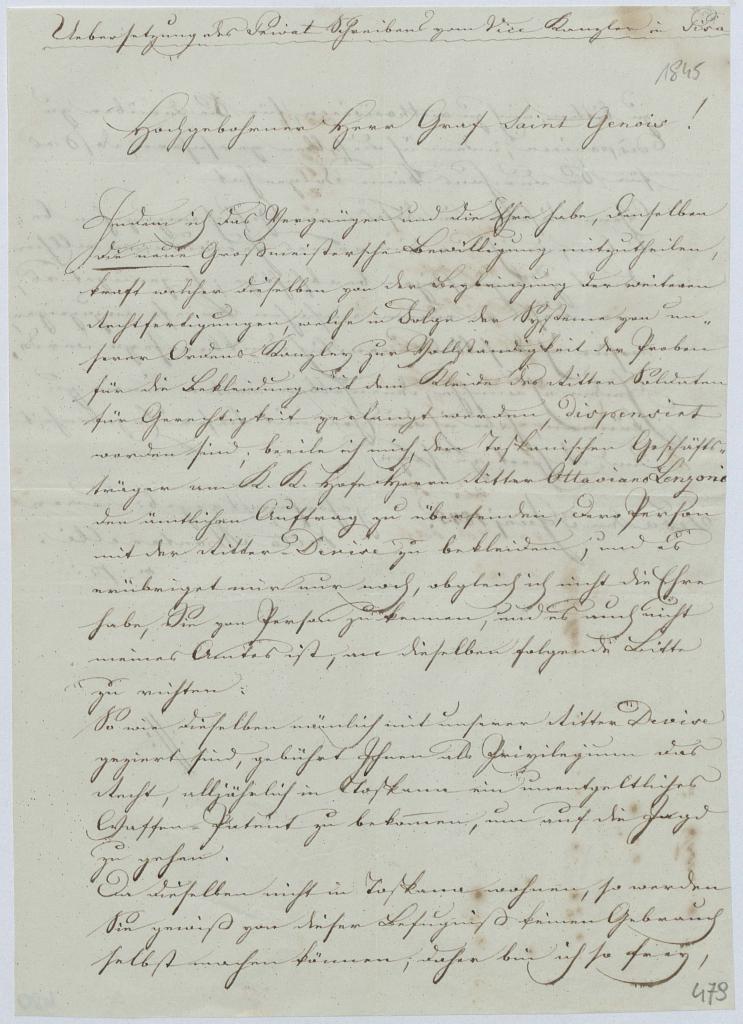 Uebersetzung des Privat Schreibens vom Vice Kanzler in Pisa
1845
Hochgebohrner Herr Graf Saint Genois!
Indem ich das Vergnügen und die Ehre habe, denselben
die neue Großmeistersche Bewilligung mitzutheilen,
kraft welcher dieselben von der Beybringung der weiteren
Rechtfertigungen, welche in Folge der Systeme von un„
serer Ordens-Kanzley zur Vollständigkeit der Proben
für die Bekleidung mit dem Kleide des Ritter Soldaten
für Gerechtigkeit verlangt werden, dispensirt
worden sind; beeile ich mich, dem Toskanischen Geschäfts„
träger am K. K. Hofe Herrn Ritter Ottaviano Lenzoni
den ämtlichen Auftrag zu übersenden, dero Person
mit der Ritter-Devise zu bekleiden; und es
erübriget mir nur noch, obgleich ich nicht die Ehre
habe, Sie von Person zu kennen, und es auch nicht
meines Amtes ist, an dieselben folgende Bitte
zu richten:
So wie dieselben nämlich mit unserer Ritter Devise
geziert sind, gebührt Ihnen als Privilegium das
Recht, alljährlich in Toskana ein unentgeltliches
Waffen-Patent zu bekommen, um auf die Jagd
zu gehen.
Da dieselben nicht in Toskana wohnen, so werden
Sie gewiß von dieser Befugniß keinen Gebrauch
selbst machen können; daher bin ich so frey,
479